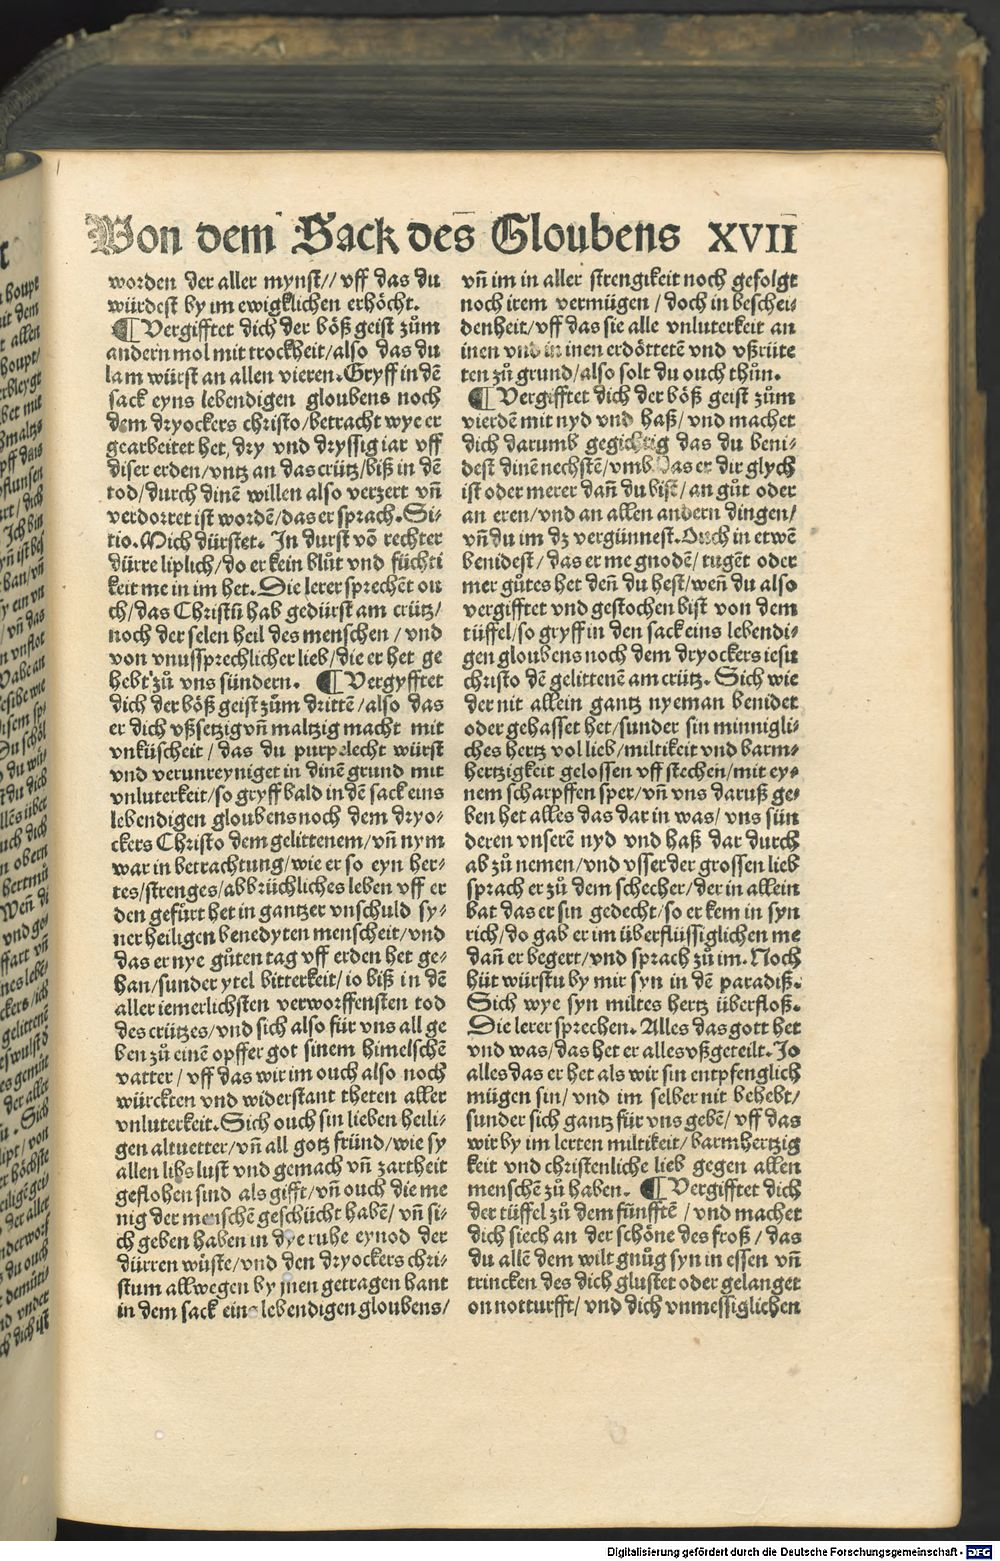 Von dem Sack des̄ Gloubens XVII
worden der aller mynst// vff das du
würdest by im ewigklichen erhöcht.
¶ Vergifftet dich der böß geist zům
andern mol mit trockheit/also das du
lam würst an allen vieren. Gryff in dē
sack eyns lebendigen gloubens noch
dem dryockers christo/betracht wye er
gearbeitet het, dry vnd dryssig iar vff
diser erden/vntz an das crütz/biß in dē
tod/durch dinē willen also verzert vn̄
verdorret ist wordē/das er sprach. Si-
tio. Mich dürstet. In durst vō rechter
dürre liplich/do er kein blůt vnd füchti
keit me in im het. Die lerer sprechēt ou
ch/das Christū hab gedürst am crütz/
noch der selen heil des menschen / vnd
von vnussprechlicher lieb/die er het ge
hebt zů vns sündern. ¶ Vergyfftet
dich der böß geist zům drittē/also das
er dich vßsetzig vn̄ maltzig macht mit
vnküscheit / das du purpelecht würst
vnd verunreyniget in dinē grund mit
vnluterkeit/so gryff bald in dē sack eins
lebendigen gloubens noch dem dryo-
ckers Christo dem gelittenem/vn̄ nym
war in betrachtung/wie er so eyn her-
tes/strenges/abbrüchliches leben vff er
den gefůrt het in gantzer vnschuld sy-
ner heiligen benedyten menscheit/vnd
das er nye gůten tag vff erden het ge-
han/sunder ytel bitterkeit/io biß in dē
aller iemerlichsten verworffensten tod
des crützes/vnd sich also für vns all ge
ben zů einē opffer got sinem himelschē
vatter / vff das wir im ouch also noch
würckten vnd widerstant theten aller
vnluterkeit. Sich ouch sin lieben heili-
gen altuetter/vn̄ all gotz fründ/wie sy
allen libs lust vnd gemach vn̄ zartheit
geflohen sind als gifft/vn̄ ouch die me
nig der menschē geschücht habē/ vn̄ si-
ch geben haben in dye ruhe eynod der
dürren wůste/vnd den dryockers chri-
stum allwegen by jnen getragen hant
in dem sack eins lebendigen gloubens/
vn̄ im in aller strengikeit noch gefolgt
noch irem vermügen / doch in beschei-
denheit/vff das sie alle vnluterkeit an
inen vnd in inen erdöttetē vnd vßrüte
ten zů grund/also solt du ouch thůn.
¶ Vergifftet dich der böß geist zům
vierdē mit nyd vnd haß/ vnd machet
dich darumb gegichtig das du beni-
dest dinē nechstē/vmb das er dir glych
ist oder merer dan̄ du bist/an gůt oder
an eren/vnd an allen andern dingen/
vn̄ du im dz vergünnest. Ouch in etwē
benidest/das er me gnodē/ tugēt oder
mer gůtes het den̄ du hest/wen̄ du also
vergifftet vnd gestochen bist von dem
tüffel/so gryff in den sack eins lebendi-
gen gloubens noch dem dryockers iesu
christo dē gelittenē am crütz. Sich wie
der nit allein gantz nyeman benidet
oder gehasset het/sunder sin minnigli-
ches hertz vol lieb/miltikeit vnd barm-
hertzigkeit gelossen vff stechen/mit ey-
nem scharpffen sper/vn̄ vns daruß ge-
ben het alles das dar in was/ vns sün
deren vnserē nyd vnd haß dar durch
ab zů nemen/vnd vsser der grossen lieb
sprach er zů dem schecher/der in allein
bat das er sin gedecht/so er kem in syn
rich/do gab er im überflüssiglichen me
dan̄ er begert/vnd sprach zů im. Noch
hüt würstu by mir syn in dē paradiß.
Sich wye syn miltes hertz überfloß.
Die lerer sprechen. Alles das gott het
vnd was/das het er alles vßgeteilt. Jo
alles das er het als wir sin entpfenglich
mügen sin/ vnd im selber nit behebt/
sunder sich gantz für vns gebē/ vff das
wir by im lerten miltikeit/barmhertzig
keit vnd christenliche lieb gegen allen
menschē zů haben. ¶ Vergifftet dich
der tüffel zů dem fünfftē / vnd machet
dich siech an der schöne des froß / das
du allē dem wilt gnůg syn in essen vn̄
trincken des dich glustet oder gelanget
on notturfft/ vnd dich vnmessiglichen
Digitalisierung gefördert durch die Deutsche Forschungsgemeinschaft - DFG